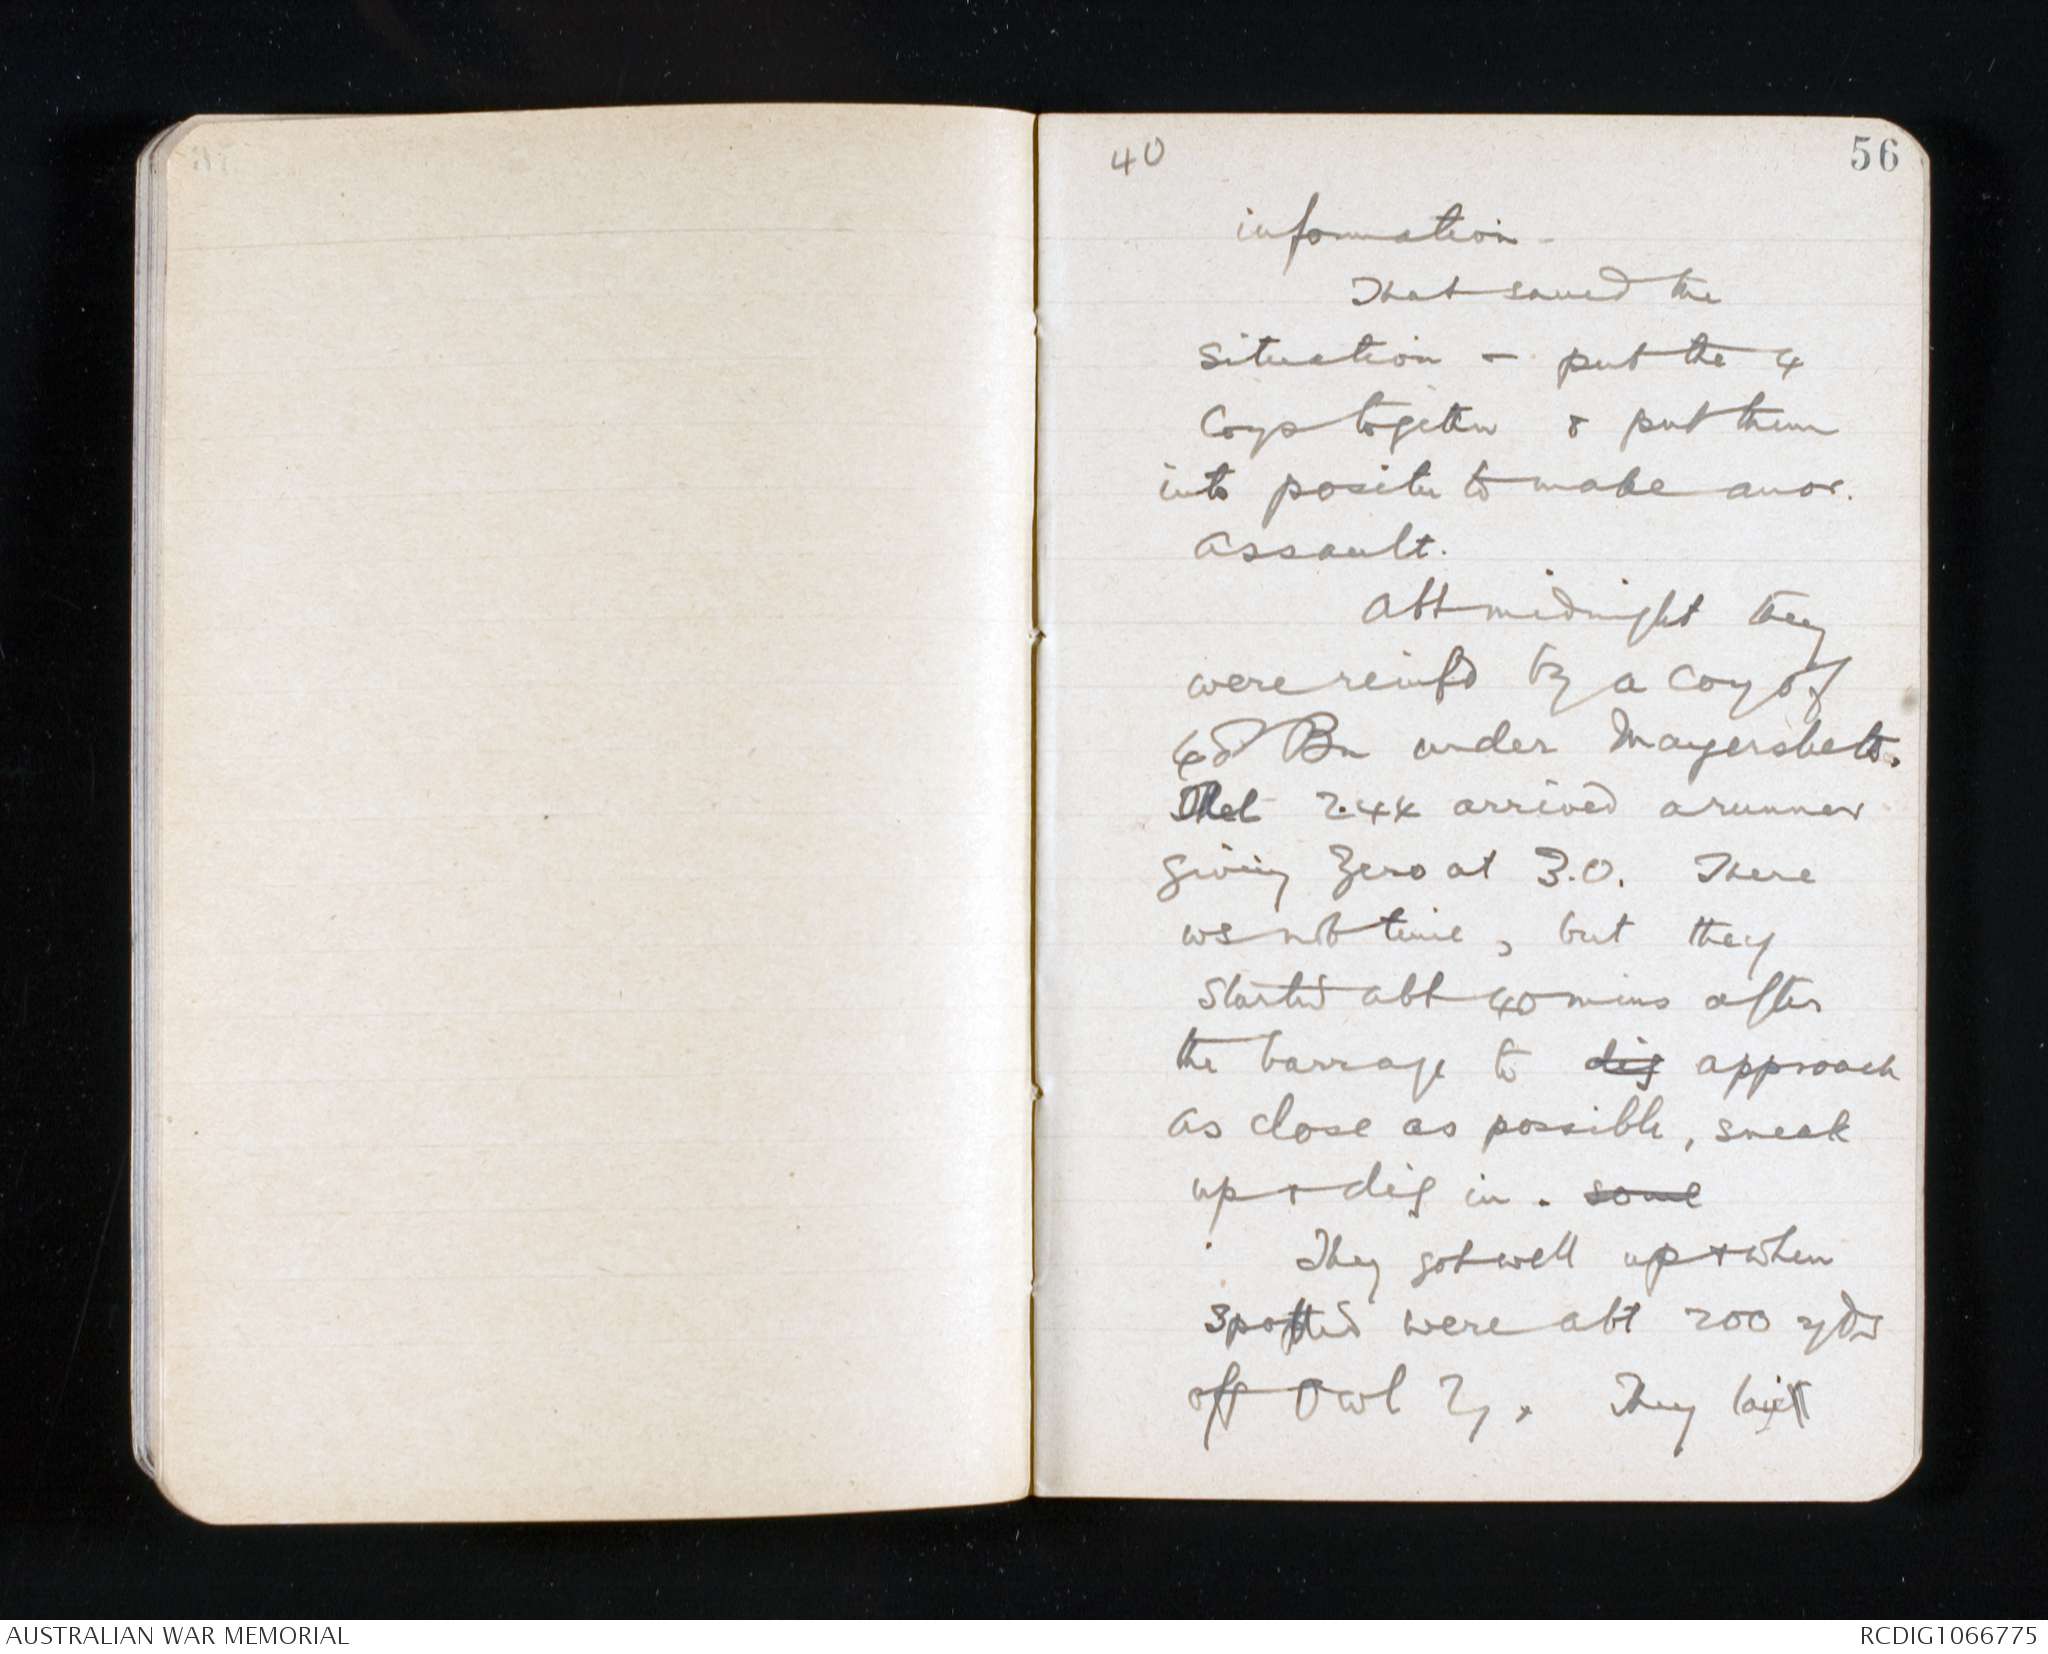 40
56
information -
That saved the
situation - put the 4
Coys together & put them
into positn to make anor.
assault.
Abt midnight they
were reinfd by a coy of
48 Bn under Mayersbeth.
At 2.44 arrived a runner
giving Zero at 3.0. There
ws not time, but they
started abt 40 mins after
the barrage to dig approach
as close as possible, sneak
up & dig in. some
They got well up & when
spotted were abt 200 yds
off Owl Tr. They
AUSTRALIAN WAR MEMORIAL
RCDIG1066775